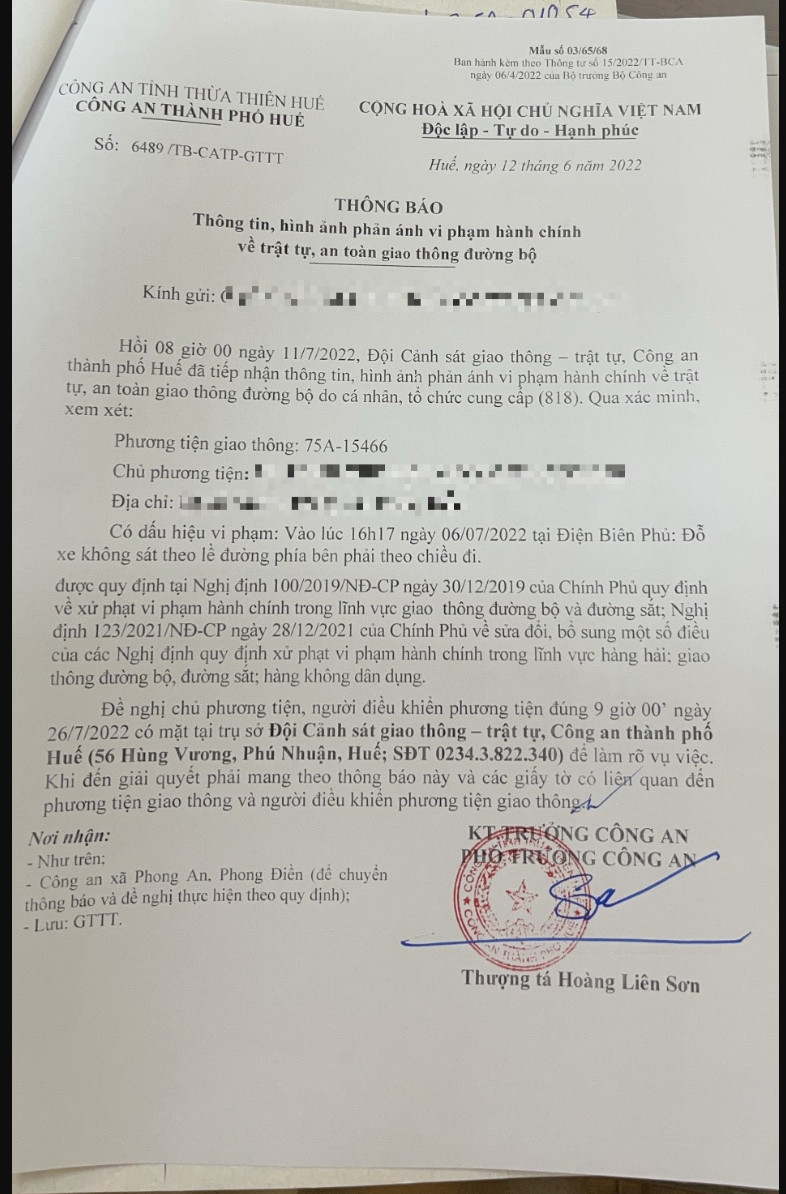 Mẫu số 03/65/68
Ban hành kèm theo Thông tư số 15/2022/TT-BCA
ngày 06/4/2022 của Bộ trưởng Bộ Công an
CÔNG AN TỈNH THỪA THIÊN HUẾ
CÔNG AN THÀNH PHỐ HUẾ
Số: 6489 /TB-CATP-GTTT
CỘNG HOÀ XÃ HỘI CHỦ NGHĨA VIỆT NAM
Độc lập - Tự do - Hạnh phúc
Huế, ngày 12 tháng 6 năm 2022
THÔNG BÁO
Thông tin, hình ảnh phản ánh vi phạm hành chính
về trật tự, an toàn giao thông đường bộ
Kính gửi:
Hồi 08 giờ 00 ngày 11/7/2022, Đội Cảnh sát giao thông – trật tự, Công an
thành phố Huế đã tiếp nhận thông tin, hình ảnh phản ánh vi phạm hành chính về trật
tự, an toàn giao thông đường bộ do cá nhân, tổ chức cung cấp (818). Qua xác minh,
xem xét:
Phương tiện giao thông: 75A-15466
Chủ phương tiện:
Địa chỉ:
Có dấu hiệu vi phạm: Vào lúc 16h17 ngày 06/07/2022 tại Điện Biên Phủ: Đỗ
xe không sát theo lề đường phía bên phải theo chiều đi.
được quy định tại Nghị định 100/2019/NĐ-CP ngày 30/12/2019 của Chính Phủ quy định
về xử phạt vi phạm hành chính trong lĩnh vực giao thông đường bộ và đường sắt; Nghị
định 123/2021/NĐ-CP ngày 28/12/2021 của Chính Phủ về sửa đổi, bổ sung một số điều
của các Nghị định quy định xử phạt vi phạm hành chính trong lĩnh vực hàng hải; giao
thông đường bộ, đường sắt; hàng không dân dụng.
Đề nghị chủ phương tiện, người điều khiển phương tiện đúng 9 giờ 00’ ngày
26/7/2022 có mặt tại trụ sở Đội Cảnh sát giao thông – trật tự, Công an thành phố
Huế (56 Hùng Vương, Phú Nhuận, Huế; SĐT 0234.3.822.340) để làm rõ vụ việc.
Khi đến giải quyết phải mang theo thông báo này và các giấy tờ có liên quan đến
phương tiện giao thông và người điều khiển phương tiện giao thông.
Nơi nhận:
- Như trên;
- Công an xã Phong An, Phong Điền (để chuyển
thông báo và đề nghị thực hiện theo quy định);
- Lưu: GTTT.
KT.TRƯỞNG CÔNG AN
PHÓ TRƯỞNG CÔNG AN
Thượng tá Hoàng Liên Sơn